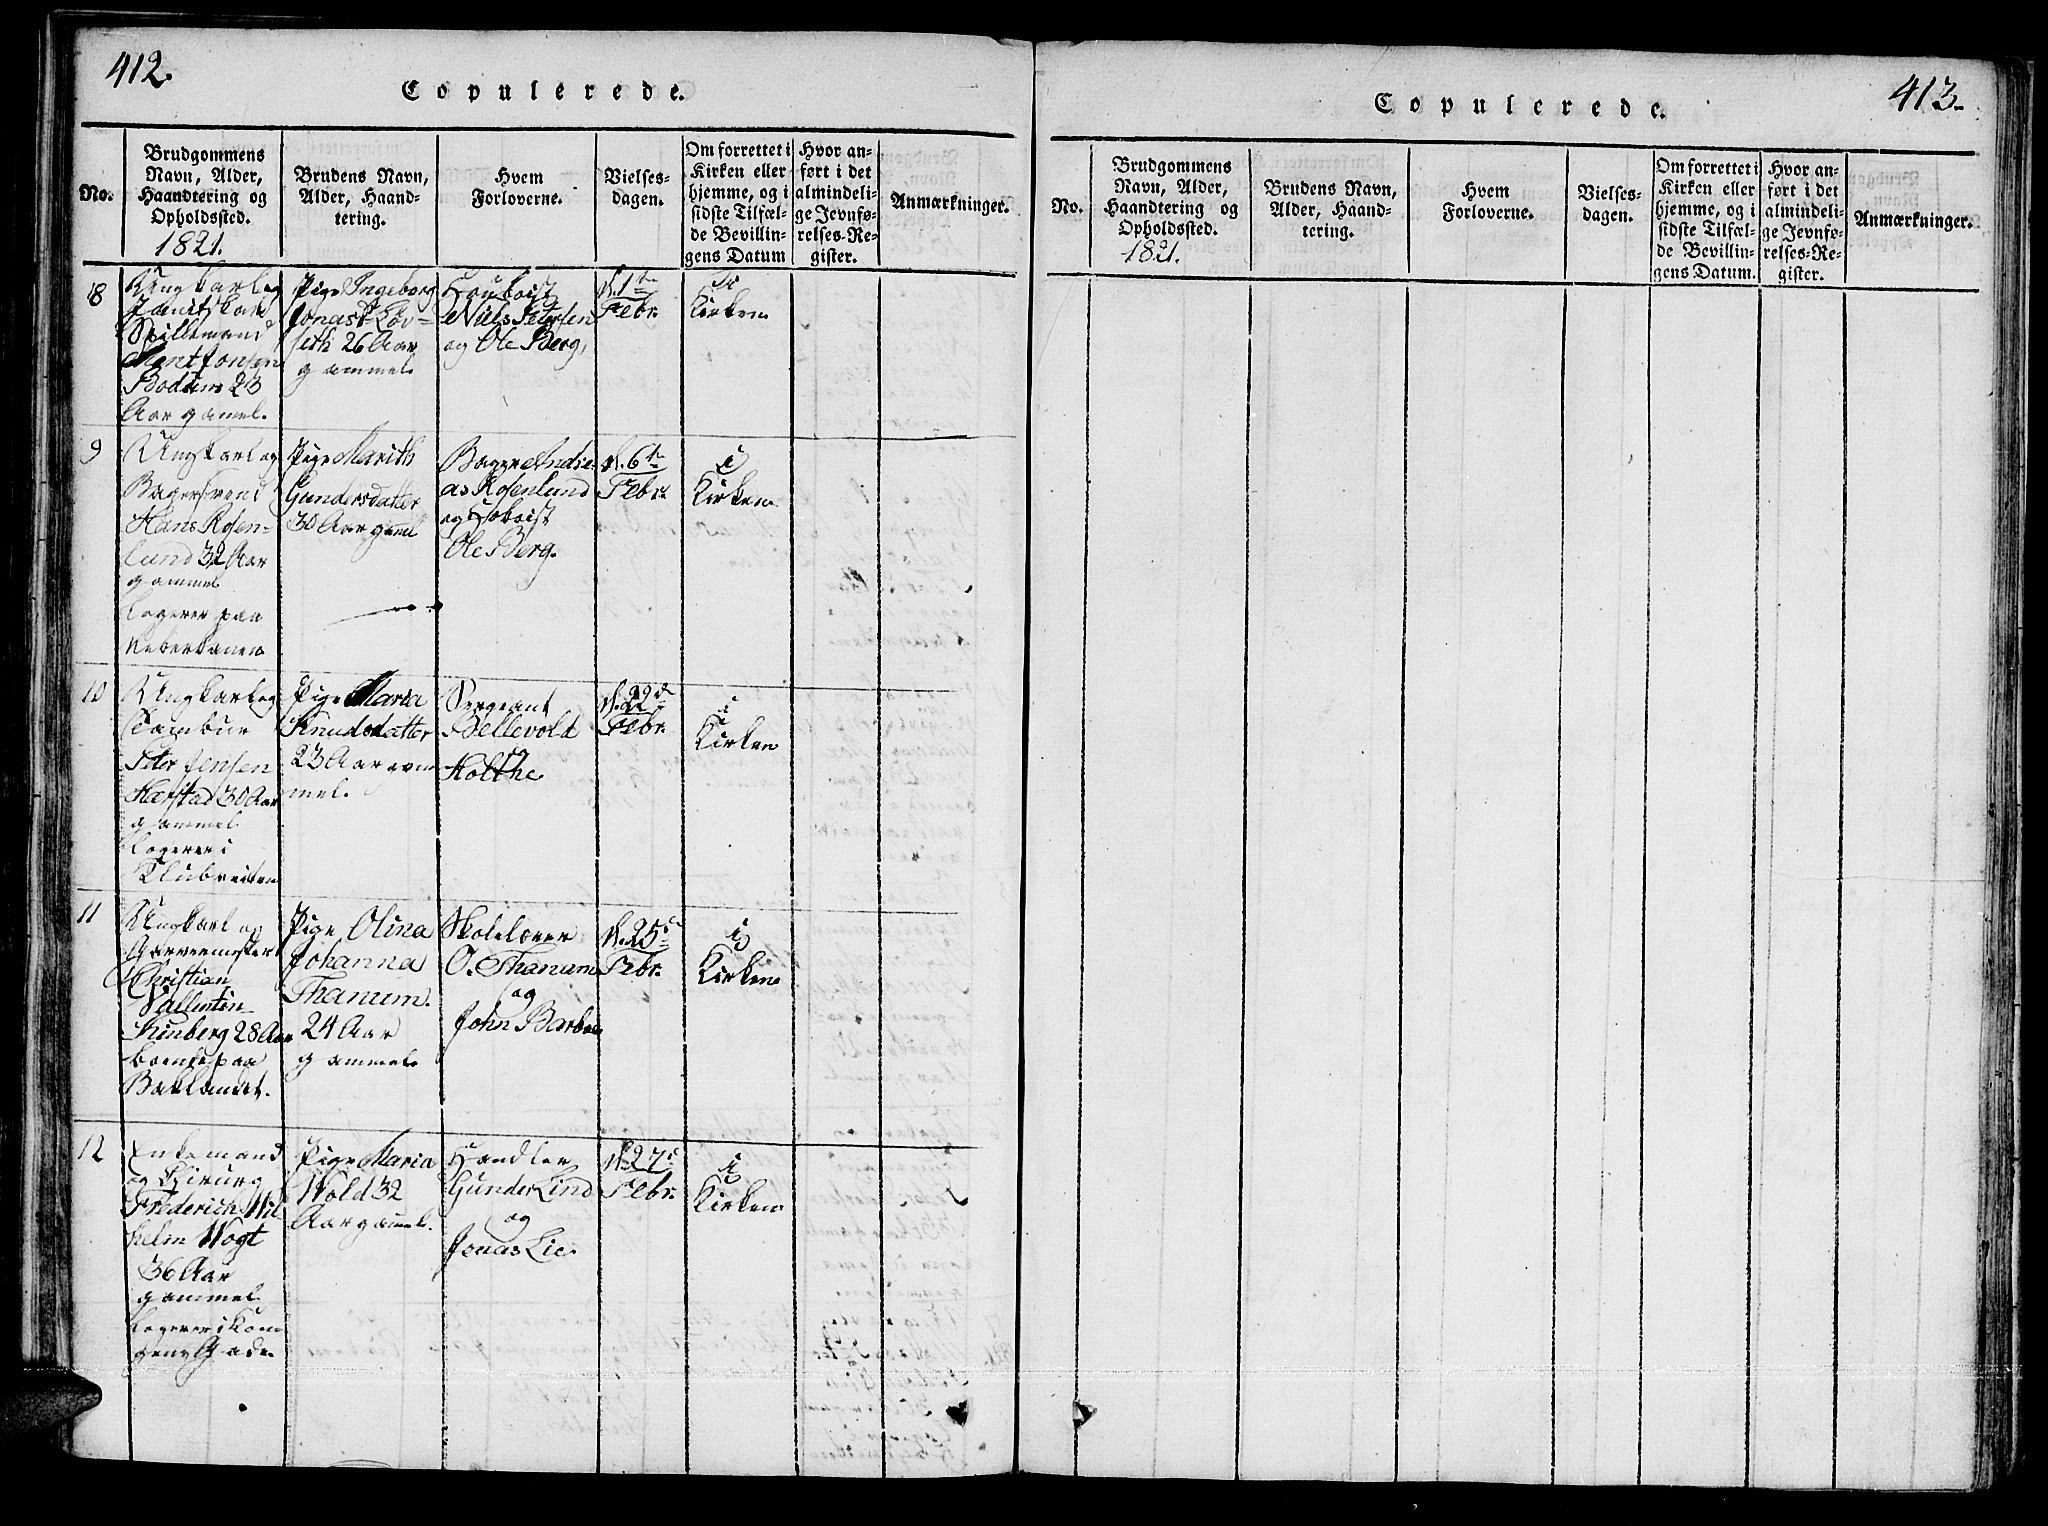 412.
Copulerede.
No.
Brudgommens
Navn, Alder,
Haandtering og
Opholdssted.
1821.
Brudens Navn,
Alder, Haand-
tering.
Hvem
Forloverne.
Vielses-
dagen.
Om forrettet i
Kirken eller
hjemme, og i
sidste Tilfæl-
de Bevillin-
gens Datum
Hvor an-
ført i det
almindeli-
ge Jevnfø-
relses-Re-
gister.
Anmærkninger.
8
Ungkarl og
Spillemand
Bent Jonsen
Bodum 23
Aar gamel.
Pige Ingeborg
Jonasd. Løv-
seth 26 Aar
gammel
Houboist
Niels Petersen
og Ole Berg,
d. 1te
Febr.
i
Kirken
9
Ungkarl og
Bagersvend
Hans Rosen-
lund 32 Aar
gammel
logerer paa
Reberbanen
Pige Marith
Gundersdatter
30 Aar gamel
Bager Andre-
as Rosenlund
og Hoboist
Ole Berg.
d. 6te
Febr.
i
Kirken
10
Ungkarl og
Tambur
Peter Jensen
Harstad 30 Aar
gammel
logerer i
Pige Maria
Knudsdatter
23 Aar gam
mel.
Sergeant
Bellevold
Holthe
d. 22de
Febr.
i
Kirken
11
Ungkarl og
Garvermester
Christian
Vallentin
28 Aar
boende paa
Baklandet.
Pige Olina
Johanna
Thanum.
24 Aar
gammel
Skolelærer
O. Thanum
og
John Barboe
d. 25de
Febr.
i
Kirken
12
Enkemand
og Chirurg
Frederich Wil
helm Vogt
36 Aar
gammel
logerer i Kon
gens Gade
Pige Maria
Wold 32
Aar gamel.
Handler
Gunder Lind
og
Jonas Lie.
d. 27de
Febr.
i
Kirken
413.
Copulerede.
No.
Brudgommens
Navn, Alder,
Haandtering og
Opholdssted.
1821.
Brudens Navn,
Alder, Haand-
tering.
Hvem
Forloverne.
Vielses-
dagen.
Om forrettet i
Kirken eller
hjemme, og i
sidste Tilfæl-
de Bevillin-
gens Datum.
Hvor an-
ført i det
almindeli-
ge Jevnfø-
relses-Re-
gister.
Anmærkninger.